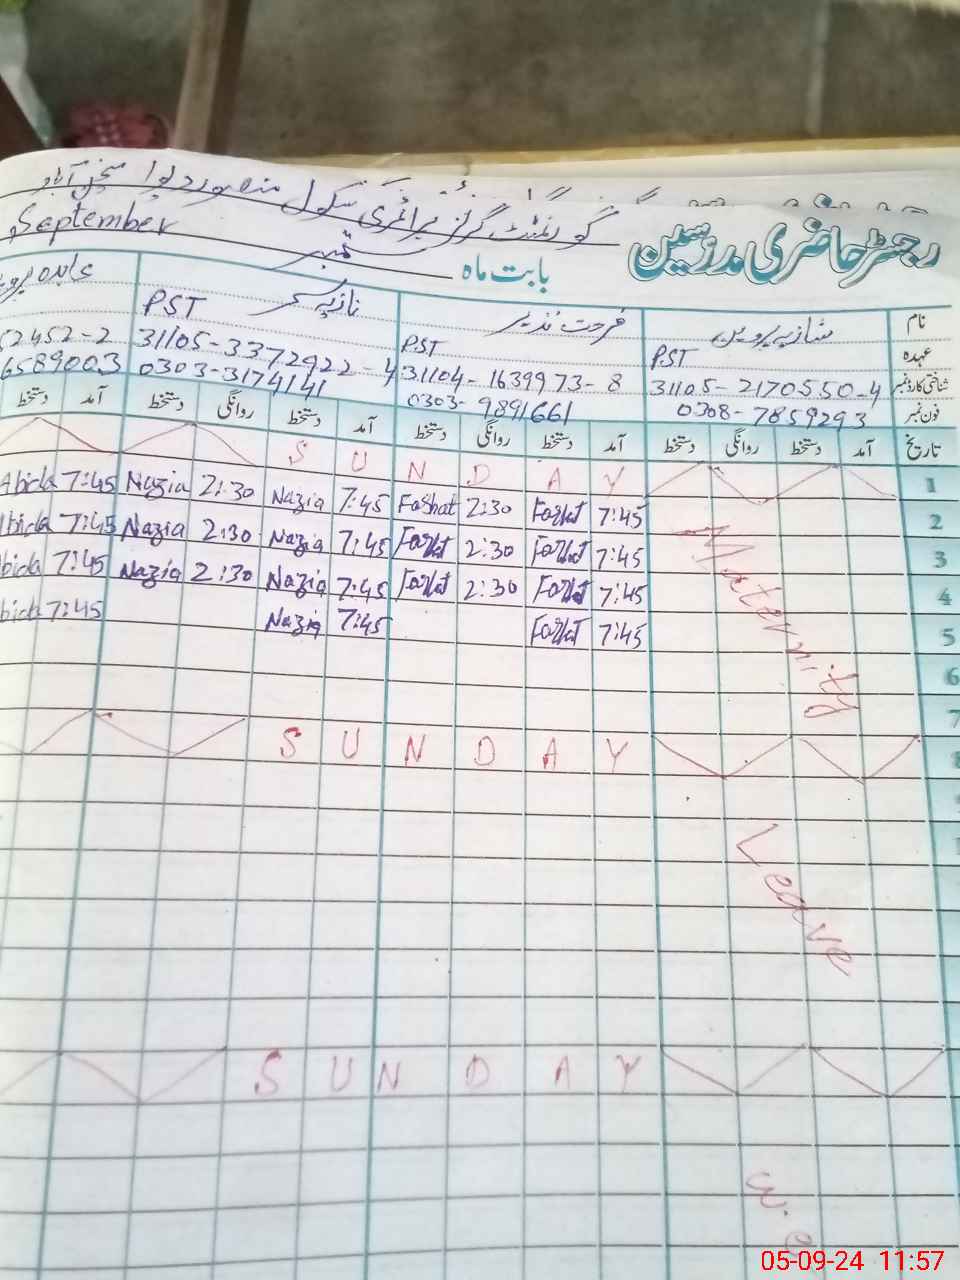 گورنمنٹ گرلز پرائمری سکول منصور دیوا منچن آباد
رجسٹر حاضری مدرسین
بابت ماہ ستمبر September
نام شازیہ پروین فرحت نذیر نازیہ عابدہ
عہدہ PST PST PST
شناختی کارڈ نمبر 31105-2170550-4 31104-1639973-8 31105-3372922-4 52452-2
فون نمبر 0308-7859293 0303-9891661 0303-3174141 6589003
تاریخ آمد دستخط روانگی دستخط آمد دستخط روانگی دستخط آمد دستخط روانگی دستخط آمد دستخط
1 S U N D A Y
2 Abida 7:45 Nazia 2:30 Nazia 7:45 Farhat 2:30 Farhat 7:45
3 bida 7:45 Nazia 2:30 Nazia 7:45 Farhat 2:30 Farhat 7:45
4 bida 7:45 Nazia 2:30 Nazia 7:45 Farhat 2:30 Farhat 7:45
5 bida 7:45 Nazia 7:45 Farhat 7:45
6
7
8 S U N D A Y
Maternity
Leave
S U N D A Y
w.e
05-09-24 11:57